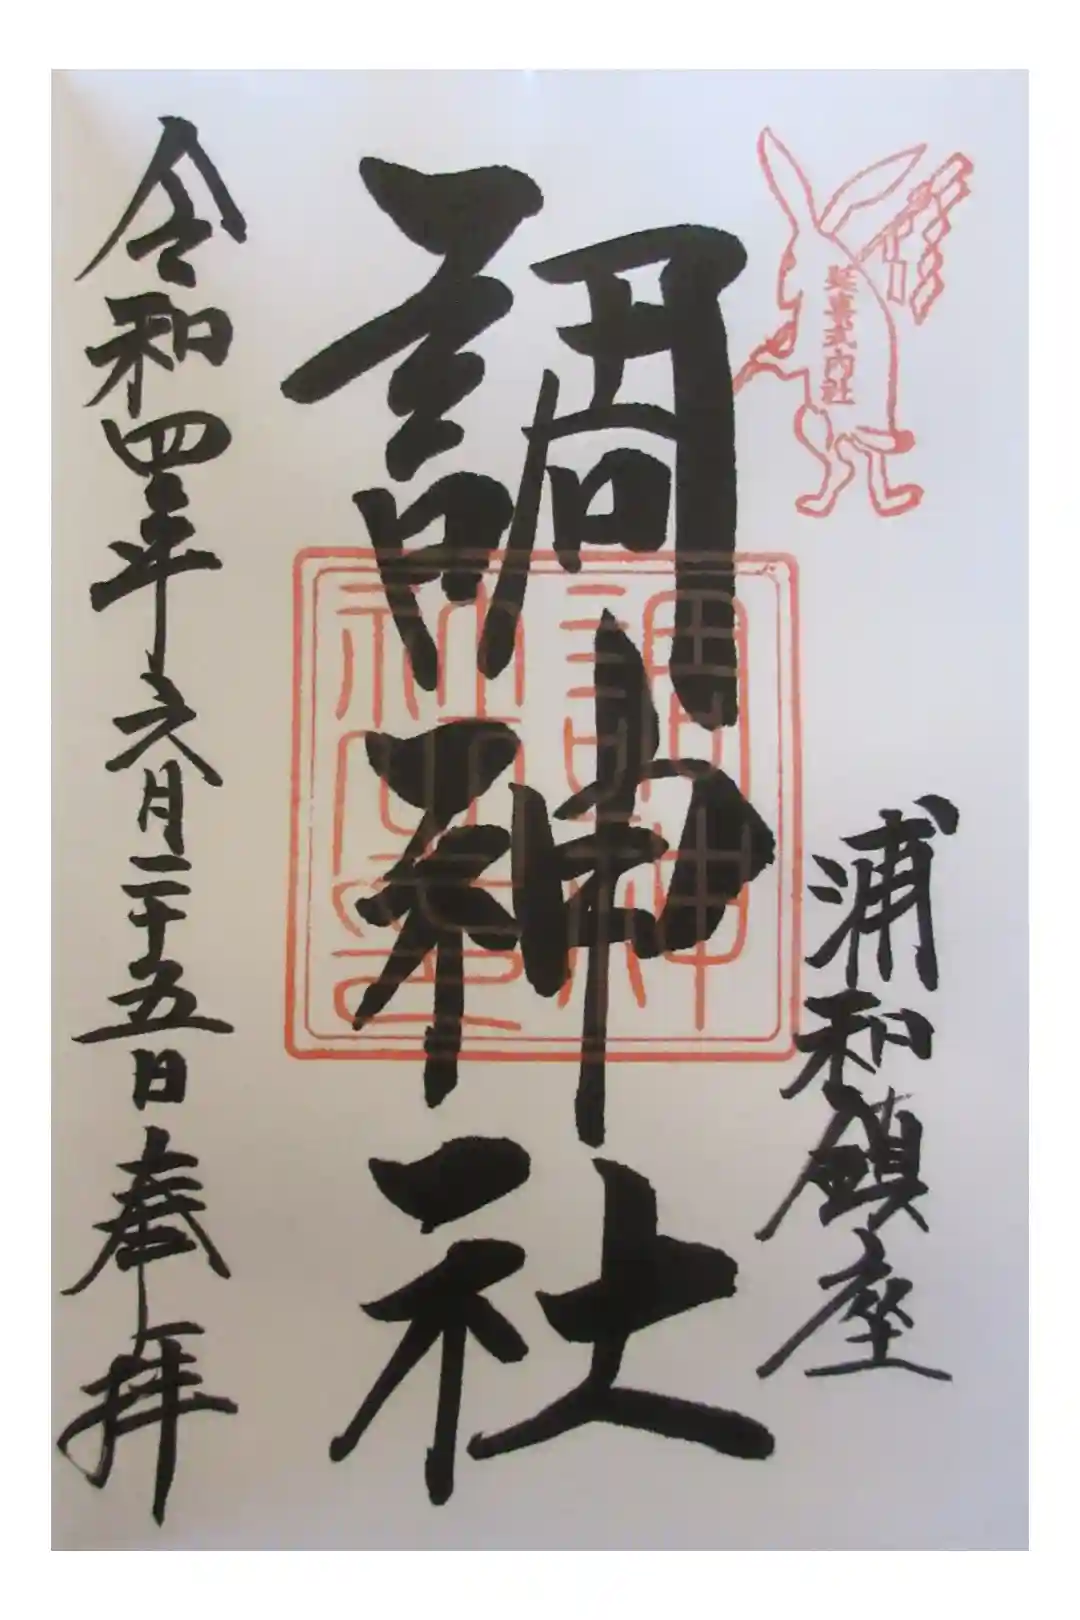 延喜式内社
浦和鎮座
調神社
調神
社之印
令和四年六月二十五日奉拝